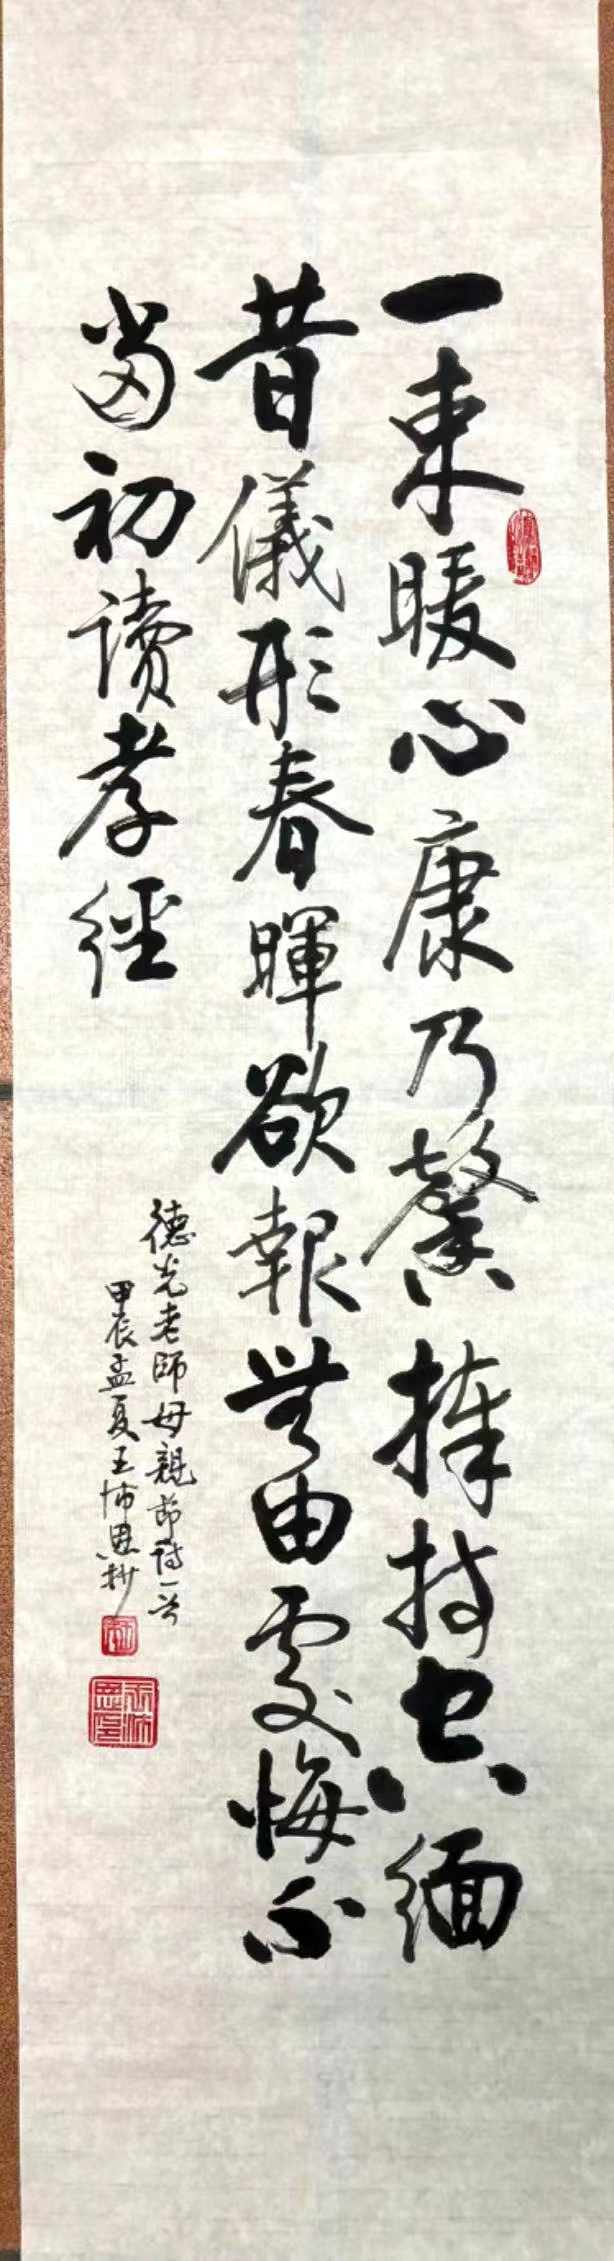 一束暖心康乃馨捧持緬
昔儀形春暉欲報無由處悔不
當初讀孝經
德光老師母親節詩一首
甲辰孟夏王沛恩抄